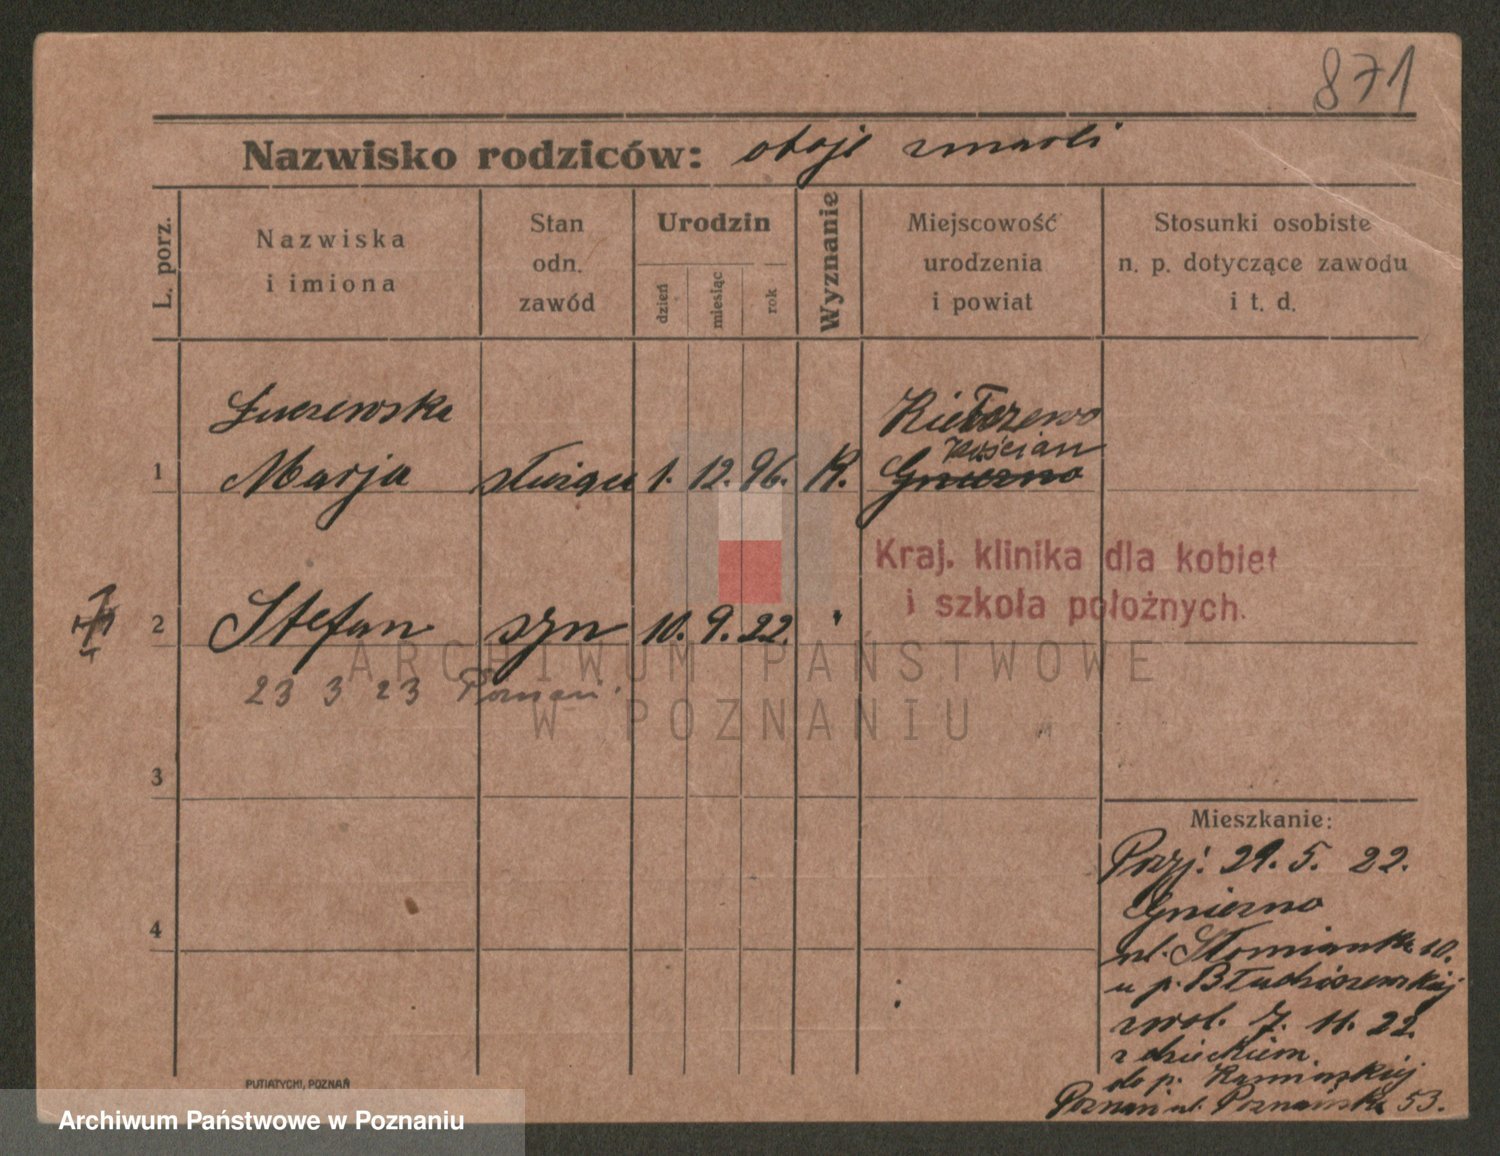 871
Nazwisko rodziców: oboje zmarli
L. porz.
Nazwiska
i imiona
Stan
odn.
zawód
Urodzin
dzień
miesiąc
rok
Wyznanie
Miejscowość
urodzenia
i powiat
Stosunki osobiste
n. p. dotyczące zawodu
i t. d.
Łuczewska
Kiełczewo
Kościan
1 Marja służąca 1. 12. 96. K. Gniezno
Kraj. klinika dla kobiet
i szkoła położnych.
2 Stefan syn 10. 9. 22. "
23 3 23 Poznań.
ARCHIWUM PAŃSTWOWE
W POZNANIU
3
Mieszkanie:
Przyj. 29. 5. 22.
Gniezno
4
ul. Słomianka 10.
u p.
zwol. 7. 11. 22.
z dzieckiem.
do p.
Poznań ul. Poznańska 53.
PUTIATYCKI, POZNAŃ
Archiwum Państwowe w Poznaniu